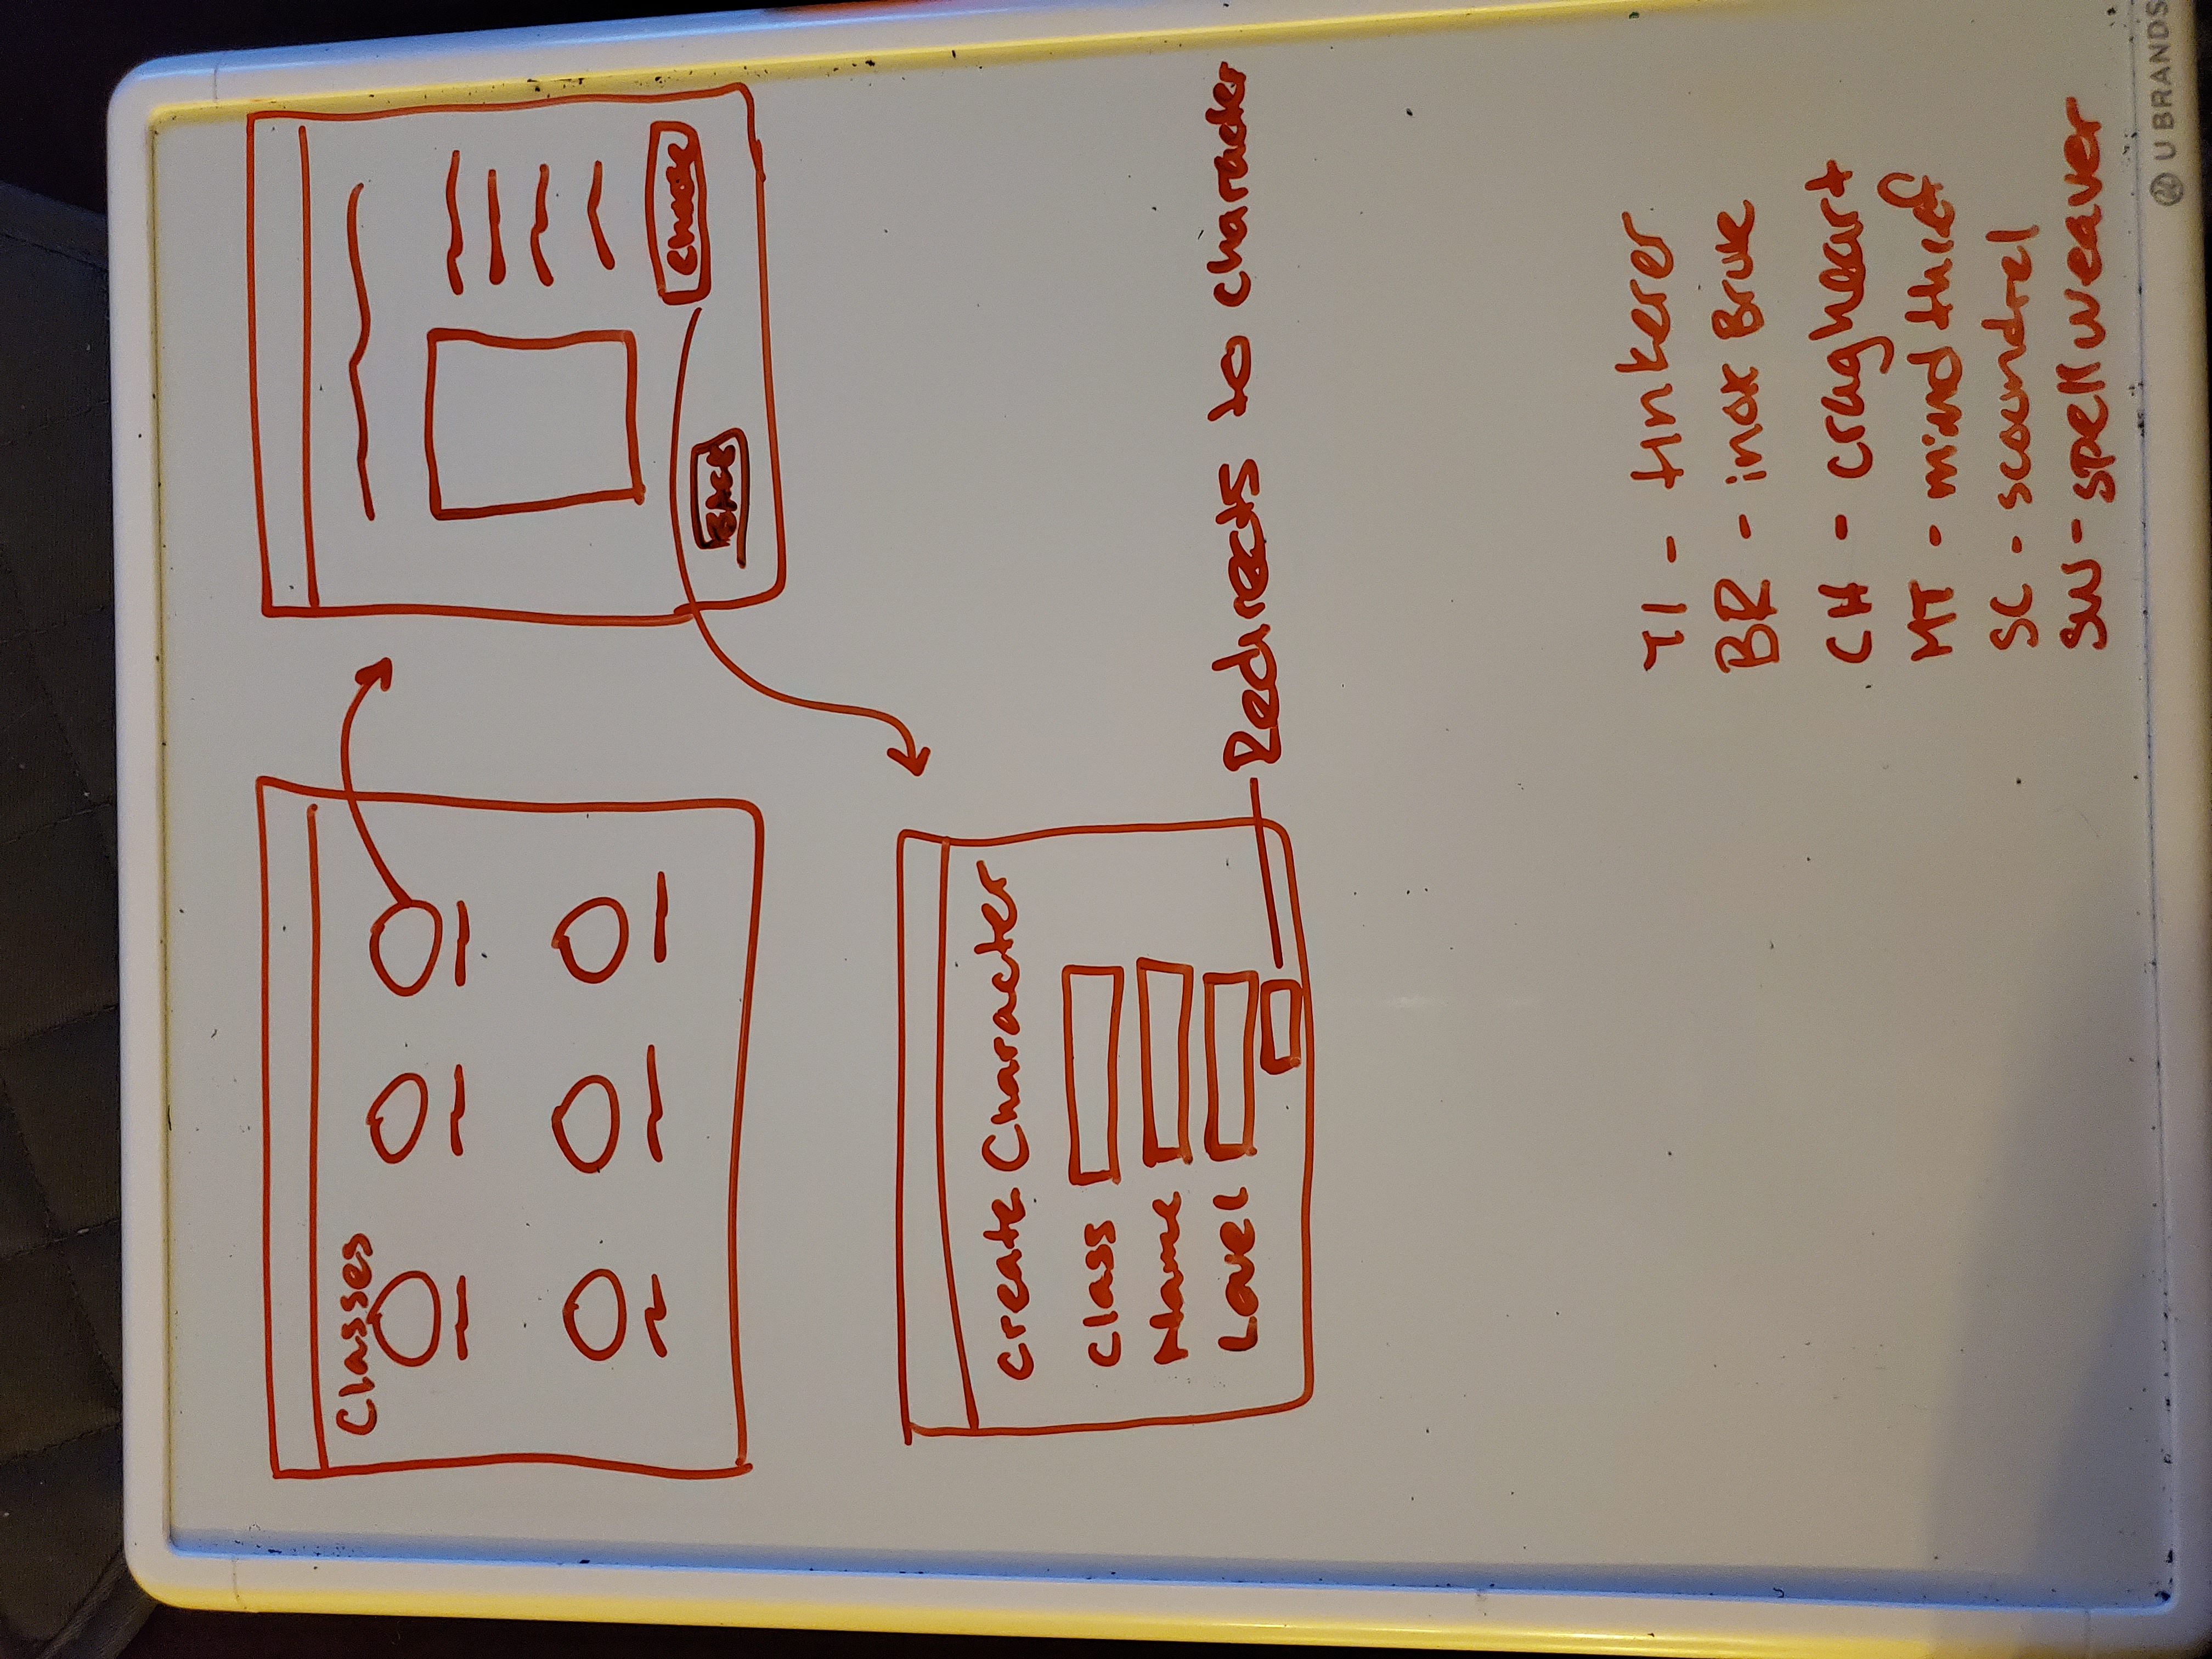 Classes
choose
BACK
Create Character
Class
Name
Level
Redirects to character
TI - tinkerer
BR - inox Brute
CH - cragheart
MT - mind thief
SC - scoundrel
SW - spell weaver
U BRANDS